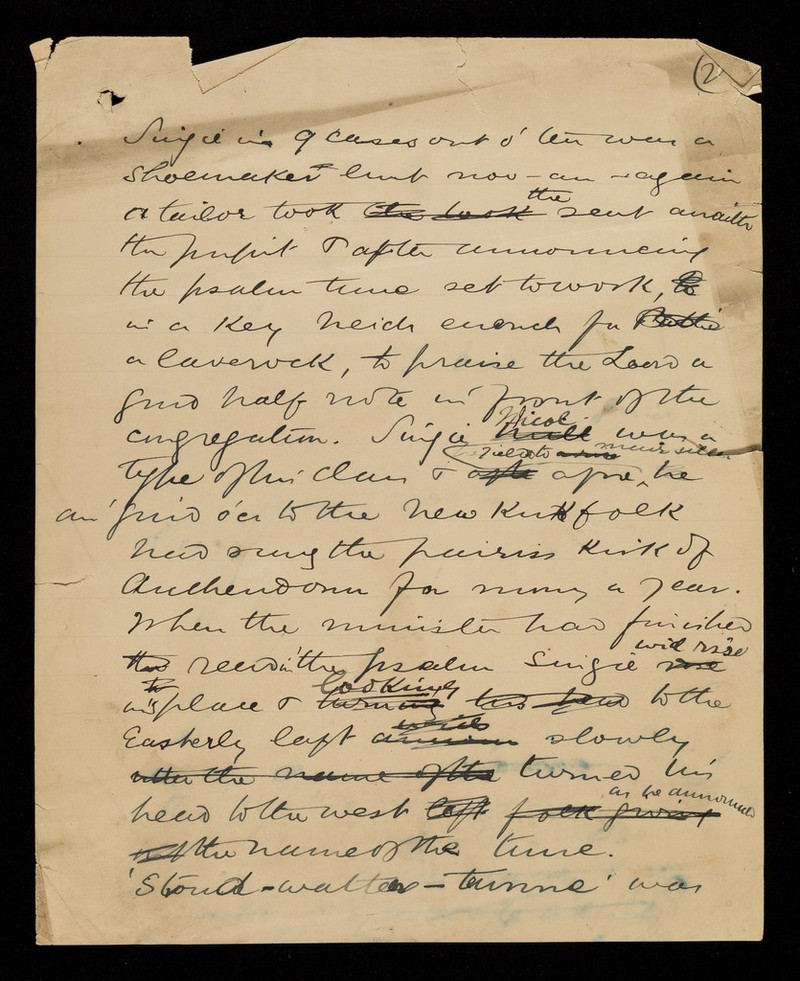 2
Singie in 9 cases out o' ten was a
shoemaker but nov - an - again
a tailor took the book the seat aneath
the pulpit & after announcing
the psalm tune set to work, to
in a key heich eneuch for
a laverock, to praise the Lord a
guid half note in front of the
congregation. Singie Nicol was a
type o' his clan & afore, he
an' gaed o'er to the New Kirk folk
had sung the pairiss kirk of
Auchendoun for mony a year.
When the minister had finished
readin' the psalm Singie rose wid rise
in's place & turning looking his head to the
Easterly laft slowly
utter the name of the turned his
head to the west laft folk giving as he announced
out the name of the tune.
'Stoud-watter-tunne' was